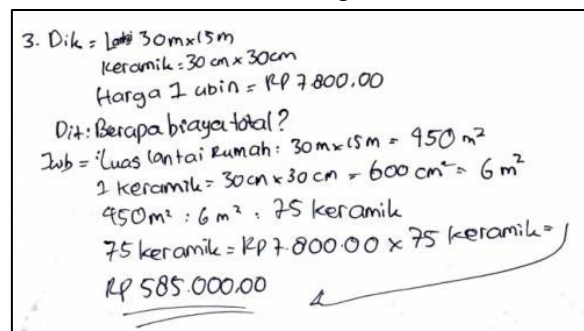 3. Dik = Lantai 30m x 15m
Keramik = 30 cm x 30cm
Harga 1 ubin = RP 7.800,00
Dit: Berapa biaya total?
Jwb = Luas lantai Rumah: 30m x 15m = 450 m²
1 Keramik = 30cm x 30 cm = 600 cm² = 6 m²
450m² : 6m² : 75 keramik
75 keramik = RP 7.800.00 x 75 keramik =
RP 585.000.00